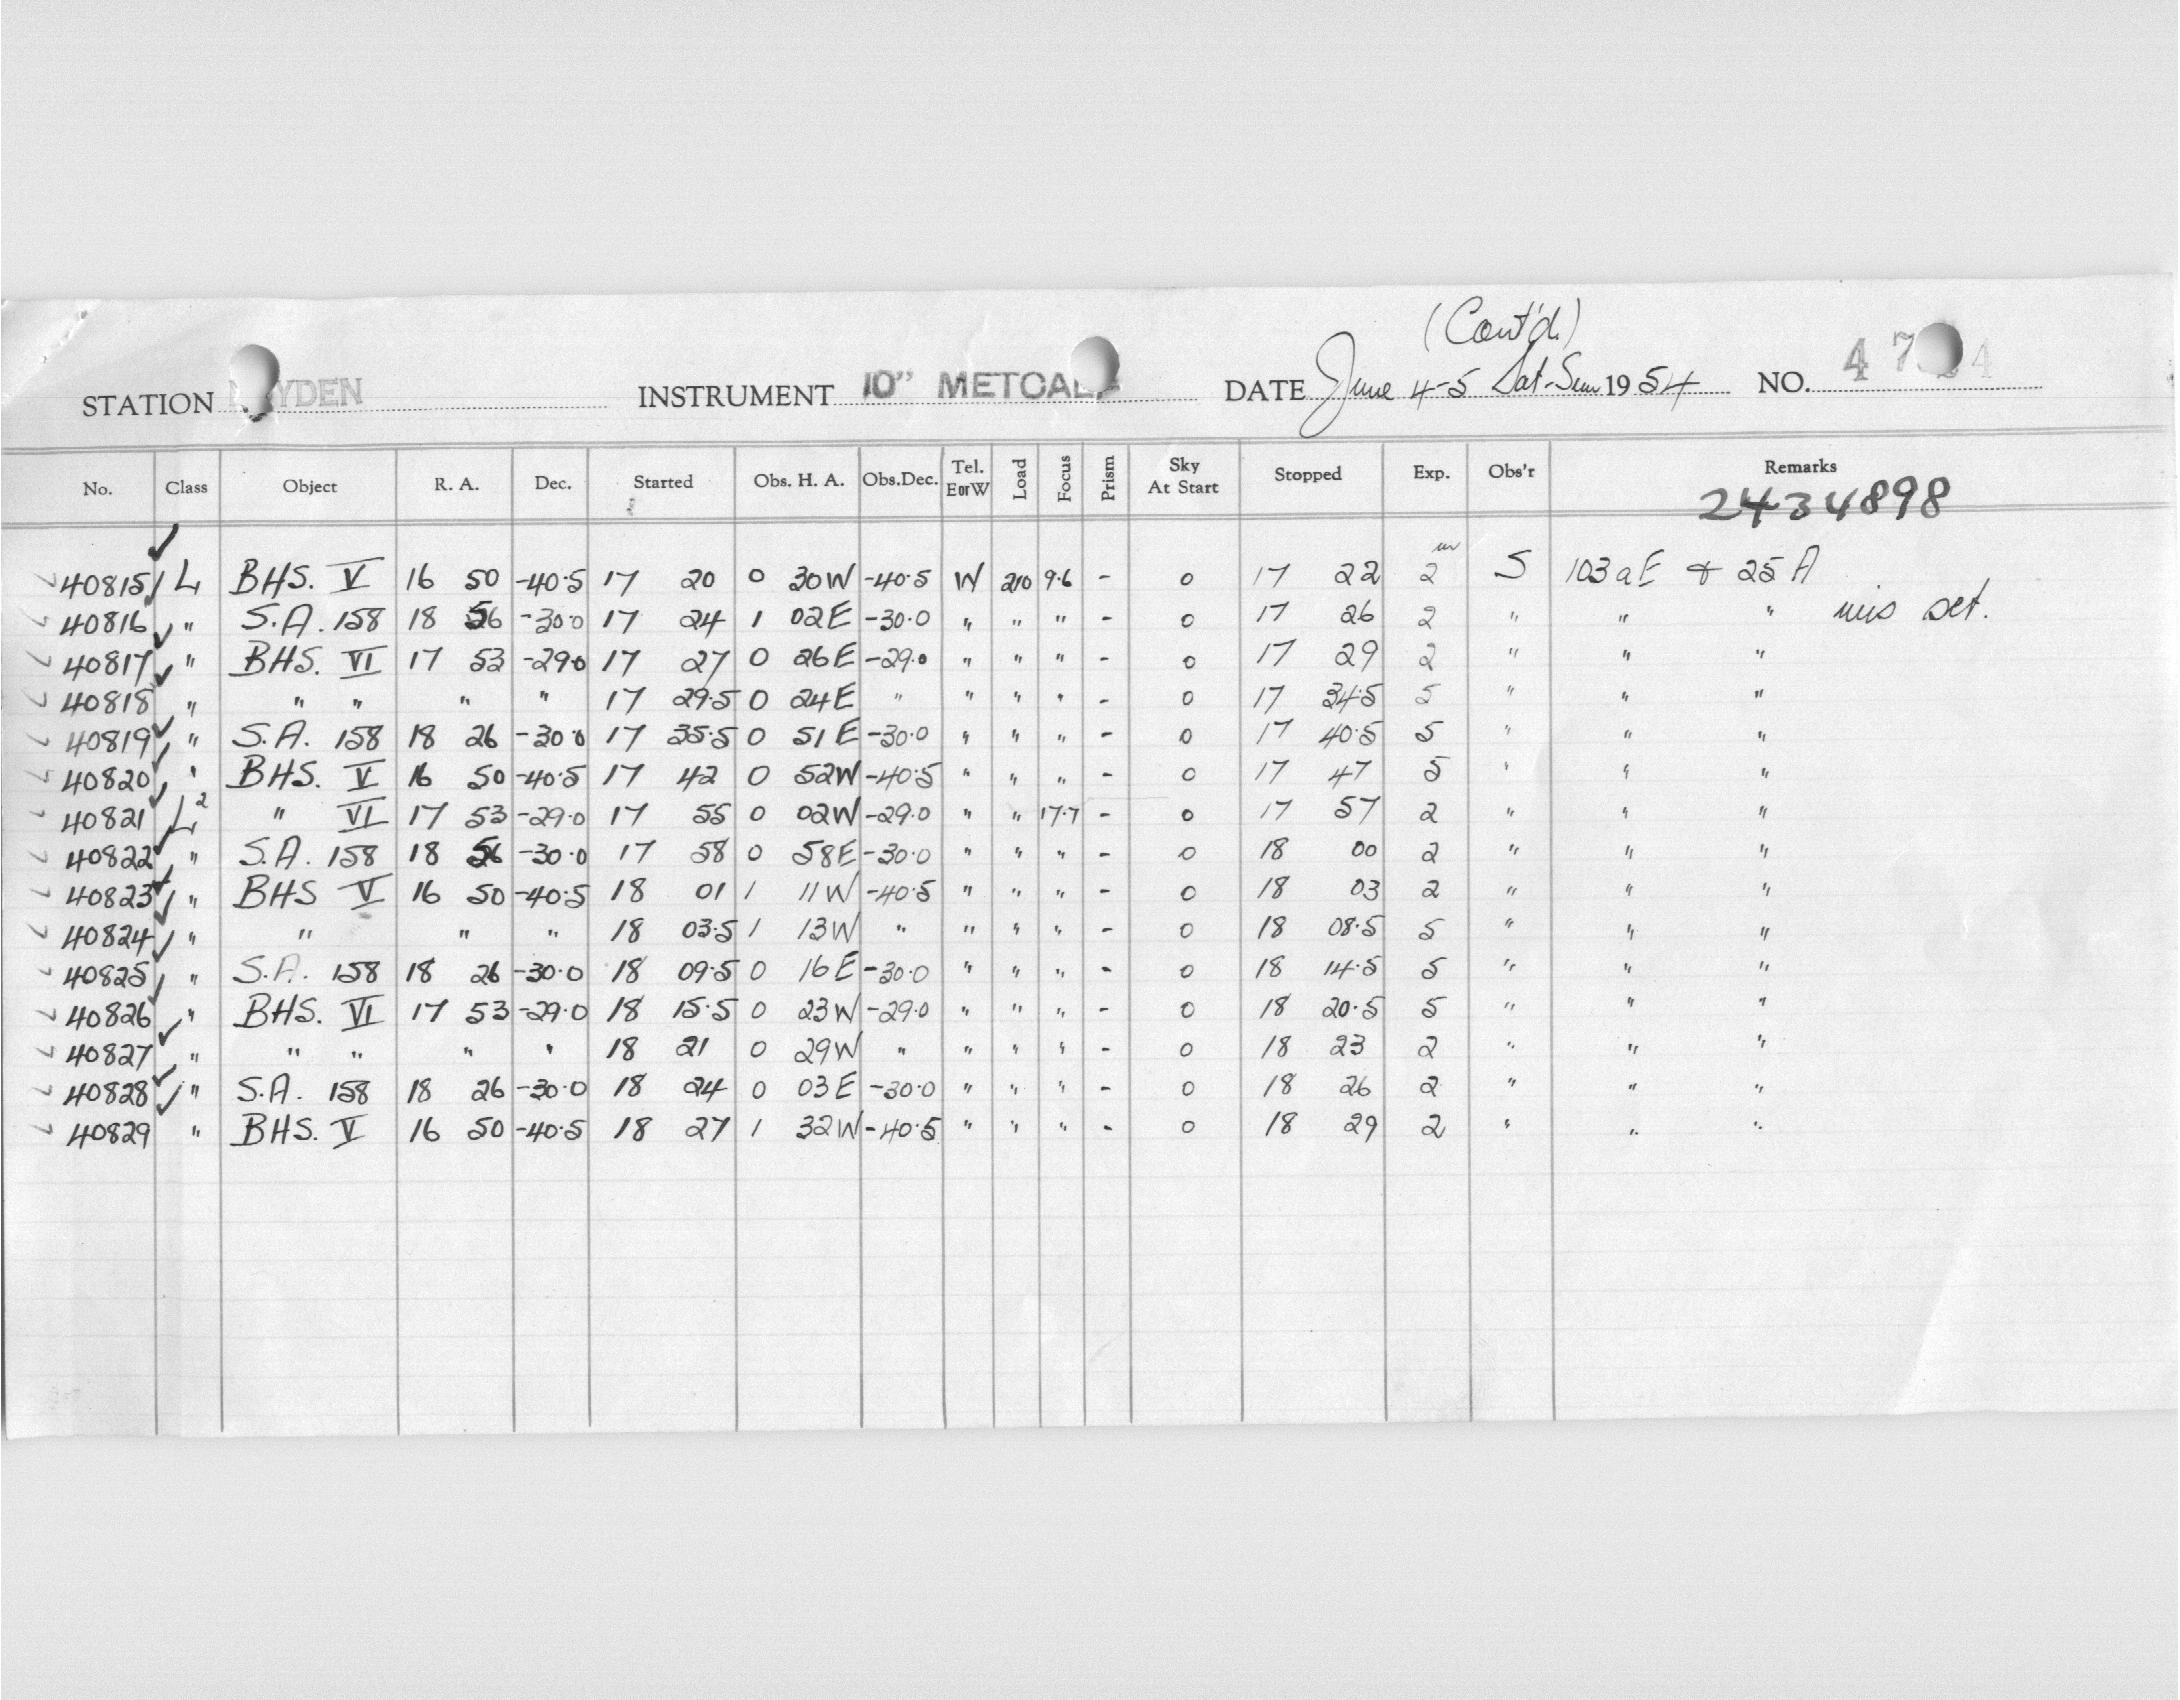 (Cont'd)
STATION YDEN INSTRUMENT 10" METCALF DATE June 4-5 Sat-Sun 1954 NO. 47 4
No. Class Object R. A. Dec. Started Obs. H. A. Obs.Dec. Tel. E or W Load Focus Prism Sky At Start Stopped Exp. Obs'r Remarks
2434898
40815 L BHS. V 16 50 -40.5 17 20 0 30W -40.5 W 210 9.6 - 0 17 22 2 m S 103aE + 25A
40816 " S.A. 158 18 56 -30.0 17 24 1 02E -30.0 " " " - 0 17 26 2 " " " mis set.
40817 " BHS. VI 17 53 -29.0 17 27 0 26E -29.0 " " " - 0 17 29 2 " " "
40818 " " " " " 17 29.5 0 24E " " " " - 0 17 34.5 5 " " "
40819 " S.A. 158 18 26 -30.0 17 35.5 0 51E -30.0 " " " - 0 17 40.5 5 " " "
40820 " BHS. V 16 50 -40.5 17 42 0 52W -40.5 " " " - 0 17 47 5 " " "
40821 L² " VI 17 53 -29.0 17 55 0 02W -29.0 " " 17.7 - 0 17 57 2 " " "
40822 " S.A. 158 18 56 -30.0 17 58 0 58E -30.0 " " " - 0 18 00 2 " " "
40823 " BHS V 16 50 -40.5 18 01 1 11W -40.5 " " " - 0 18 03 2 " " "
40824 " " " " 18 03.5 1 13W " " " " - 0 18 08.5 5 " " "
40825 " S.A. 158 18 26 -30.0 18 09.5 0 16E -30.0 " " " - 0 18 14.5 5 " " "
40826 " BHS. VI 17 53 -29.0 18 15.5 0 23W -29.0 " " " - 0 18 20.5 5 " " "
40827 " " " " " 18 21 0 29W " " " " - 0 18 23 2 " " "
40828 " S.A. 158 18 26 -30.0 18 24 0 03E -30.0 " " " - 0 18 26 2 " " "
40829 " BHS. V 16 50 -40.5 18 27 1 32W -40.5 " " " - 0 18 29 2 " " "